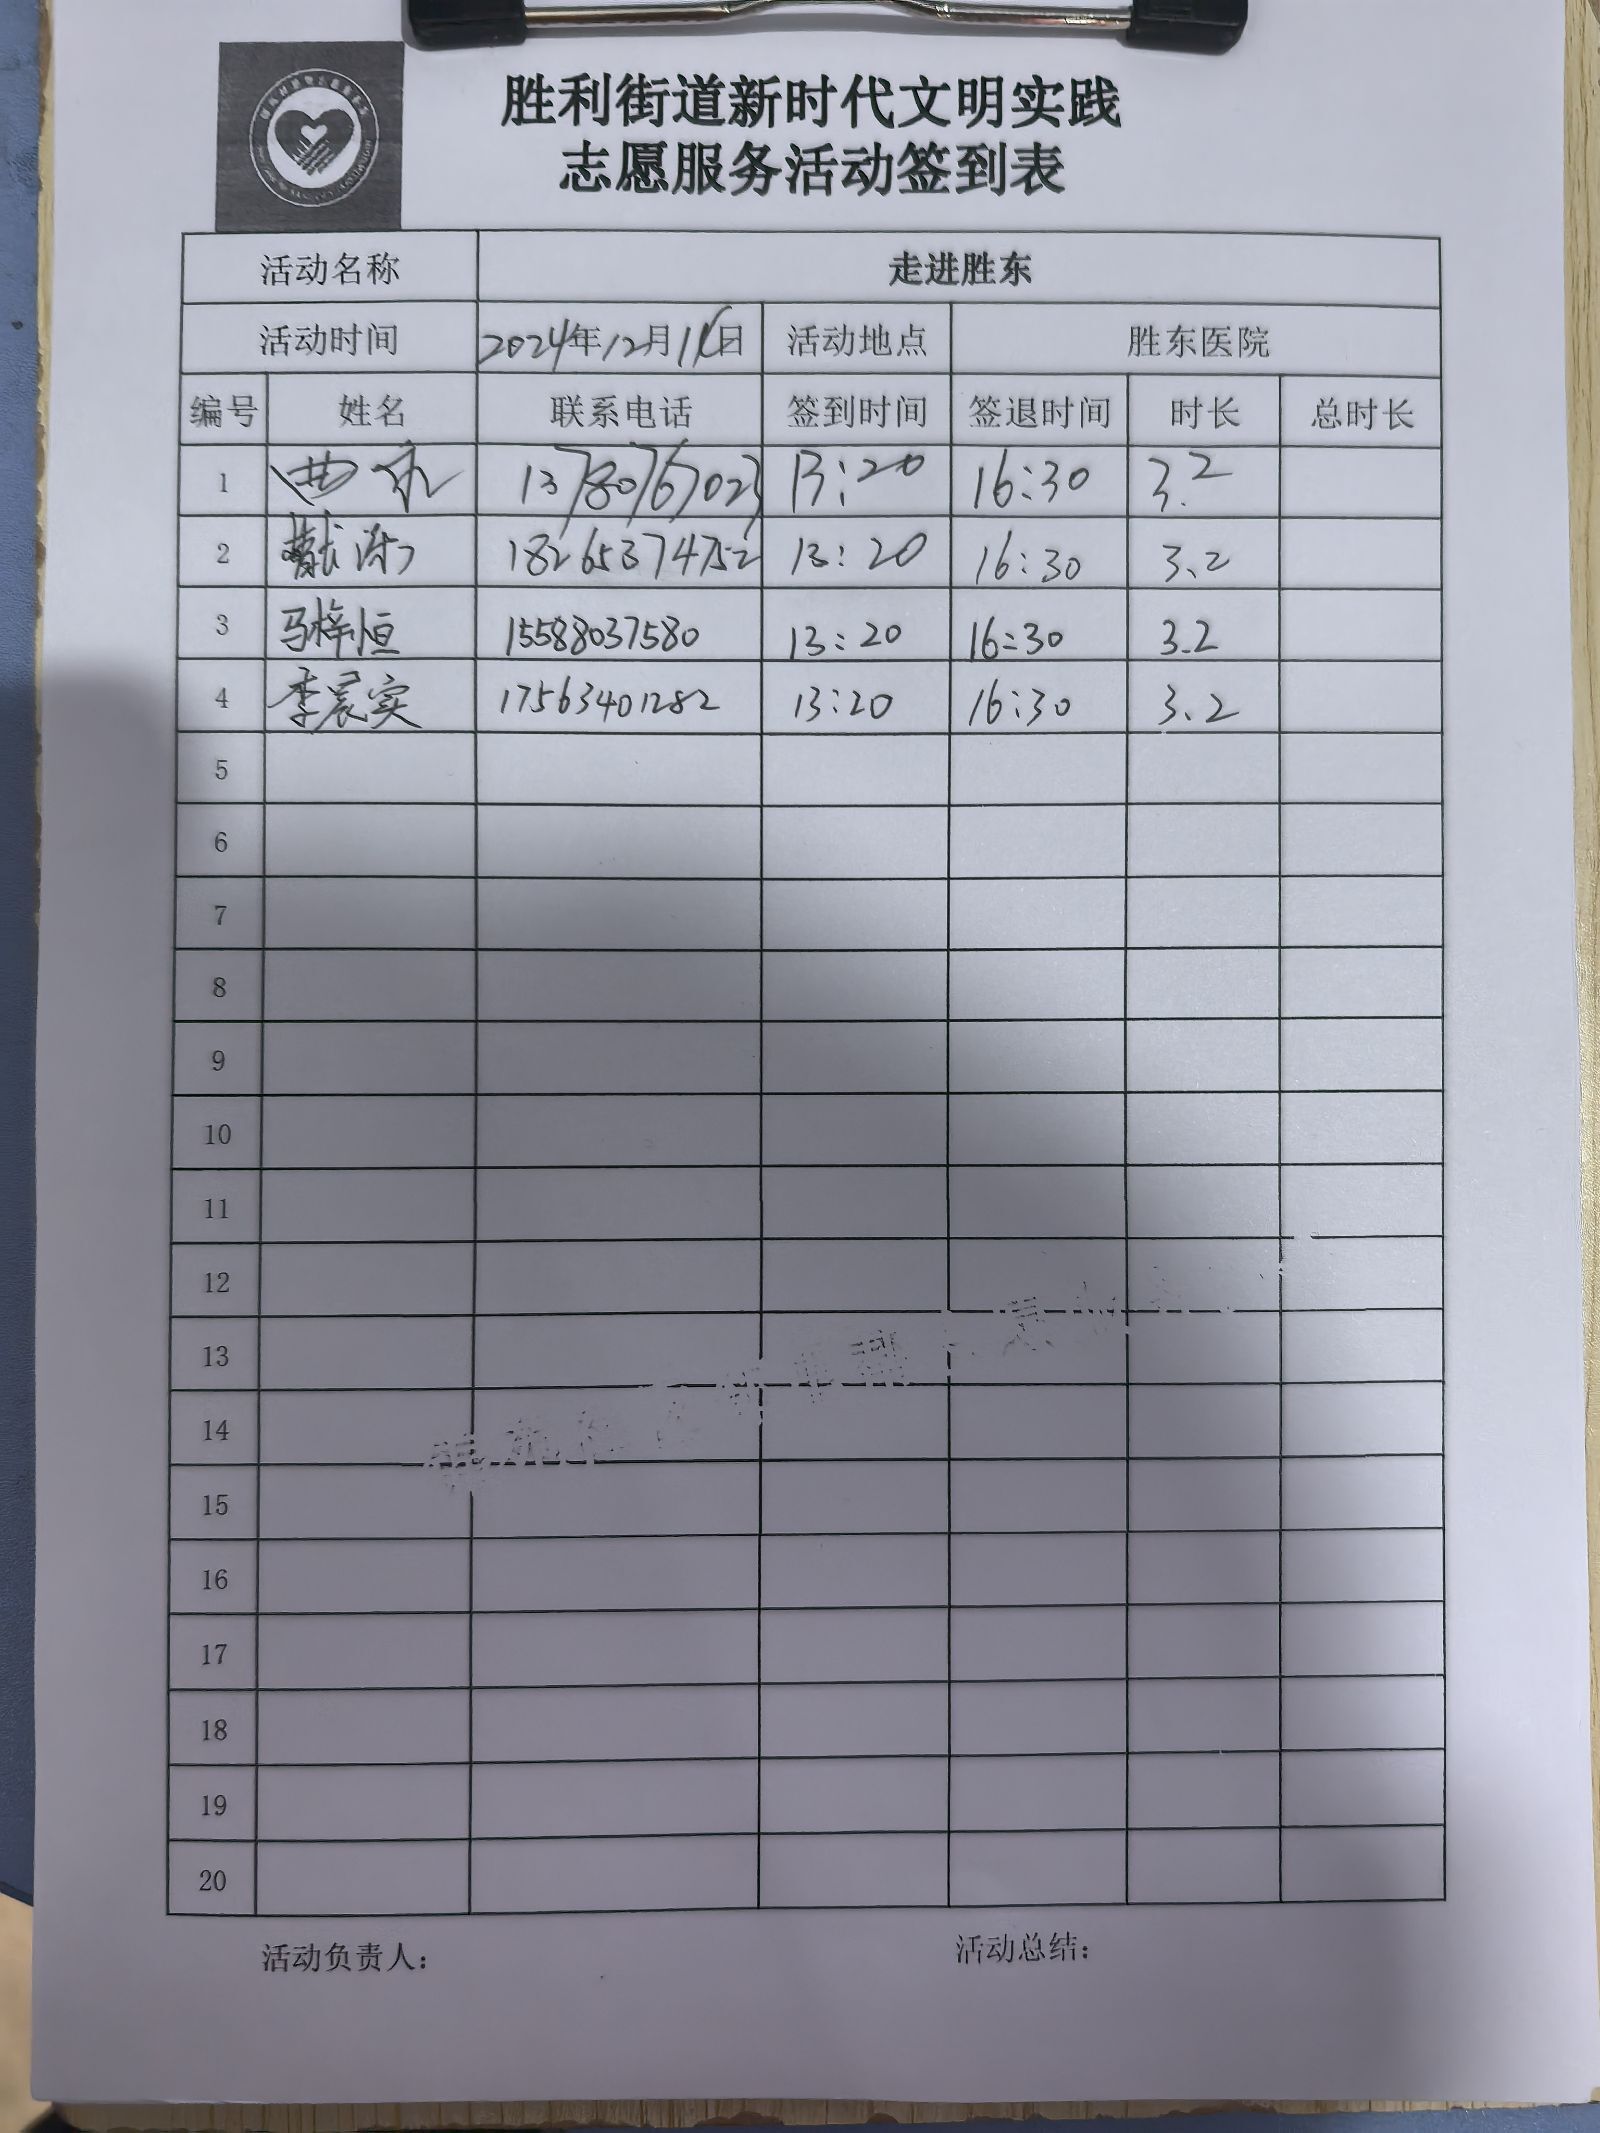 胜利街道新时代文明实践
志愿服务活动签到表
活动名称 走进胜东
活动时间 2024年12月1日 活动地点 胜东医院
编号 姓名 联系电话 签到时间 签退时间 时长 总时长
1 13780767023 13:20 16:30 3.2
2 戴 18265374752 13:20 16:30 3.2
3 马梓恒 15588037580 13:20 16:30 3.2
4 李晨实 17563401282 13:20 16:30 3.2
5
6
7
8
9
10
11
12
13
14
15
16
17
18
19
20
活动负责人: 活动总结: